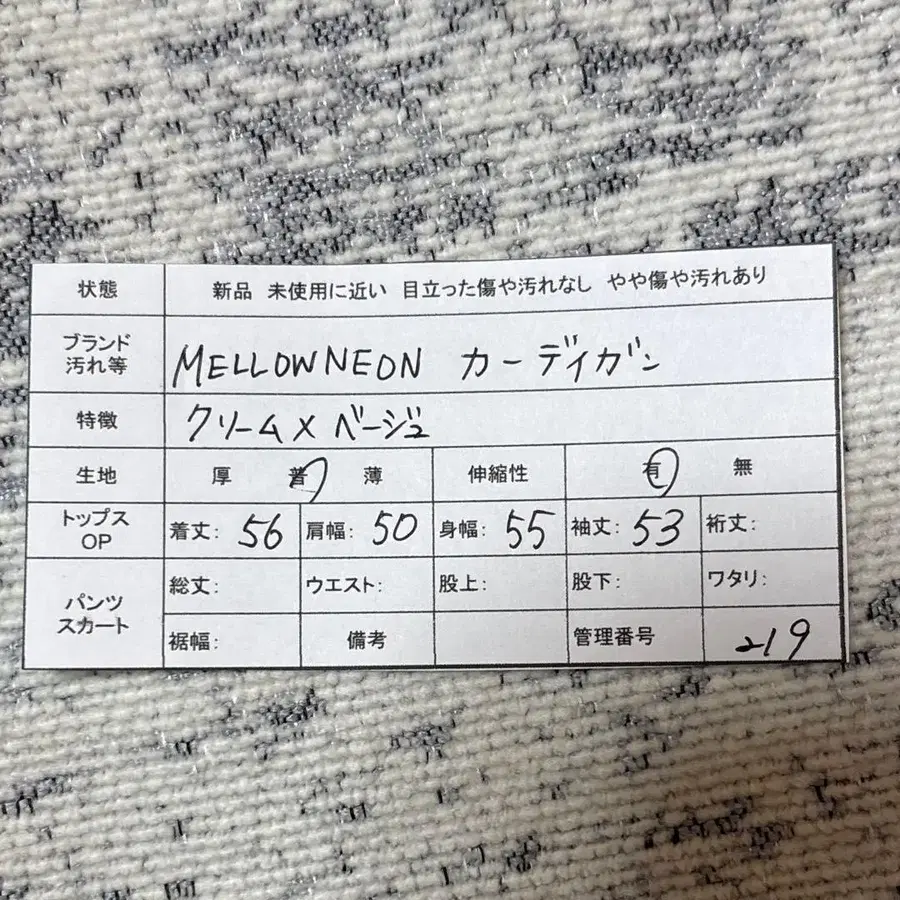 状態 新品 未使用に近い 目立った傷や汚れなし やや傷や汚れあり
ブランド
汚れ等 MELLOWNEON カーディガン
特徴 クリーム×ベージュ
生地 厚 普 薄 伸縮性 有 無
トップス
OP 着丈: 56 肩幅: 50 身幅: 55 袖丈: 53 裄丈:
パンツ
スカート 総丈: ウエスト: 股上: 股下: ワタリ:
裾幅: 備考 管理番号 219